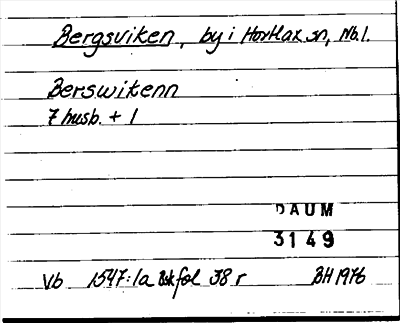 Bergsviken, by i Hortlax sn, Nb.l.
Berswikenn
7 husb. + 1
DAUM
3149
Vb 1547:1a Bskfol 38 r BH 1976